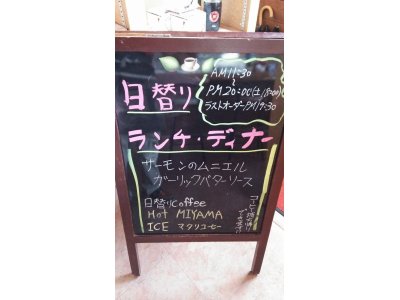 日替り
AM11:30
PM20:00(土18:00)
ラストオーダーPM19:30
ランチ・ディナー
サーモンのムニエル
ガーリックバターソース
日替りCoffee
Hot MIYAMA
ICE マタリコーヒー